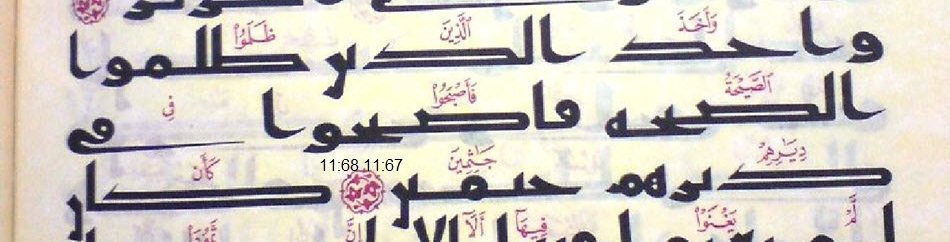 وَأَخَذَ ٱلَّذِينَ ظَلَمُوا۟
واحد الدىں طلموا
ٱلصَّيْحَةُ فَأَصْبَحُوا۟ فِى
الصىحه فاصىحوا فى
دِيَـٰرِهِمْ جَـٰثِمِينَ كَأَن
دىرهم حىمىں كاں
11:68 11:67
لَّمْ يَغْنَوْا۟ فِيهَآ أَلَآ إِنَّ ثَمُودَا۟